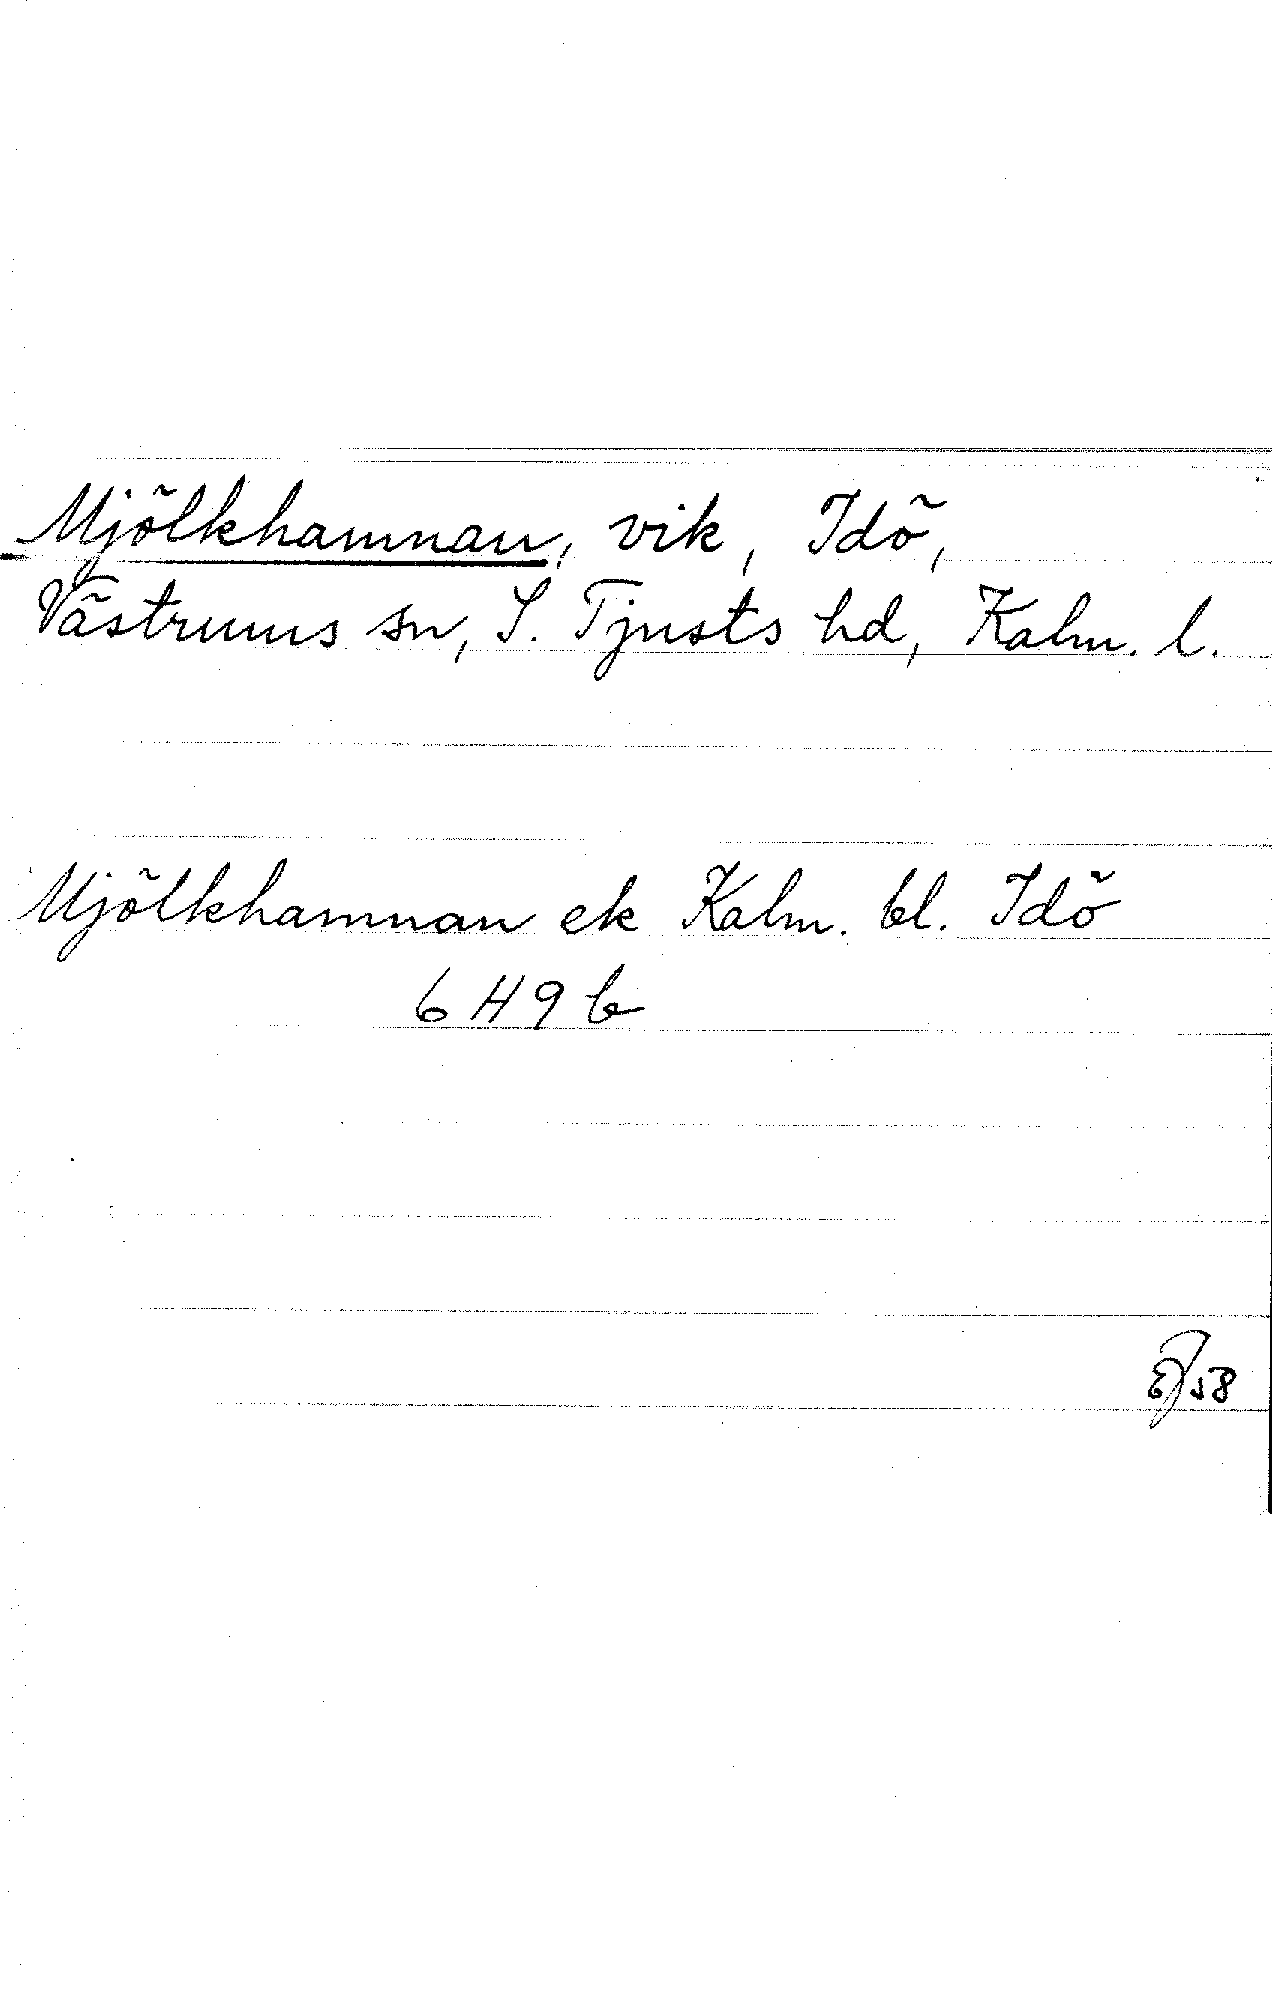 Mjölkhamnan, vik, Idö,
Västrums sn, S. Tjusts hd, Kalm. l.
Mjölkhamnan ek Kalm. bl. Idö
6 H 9 b
58